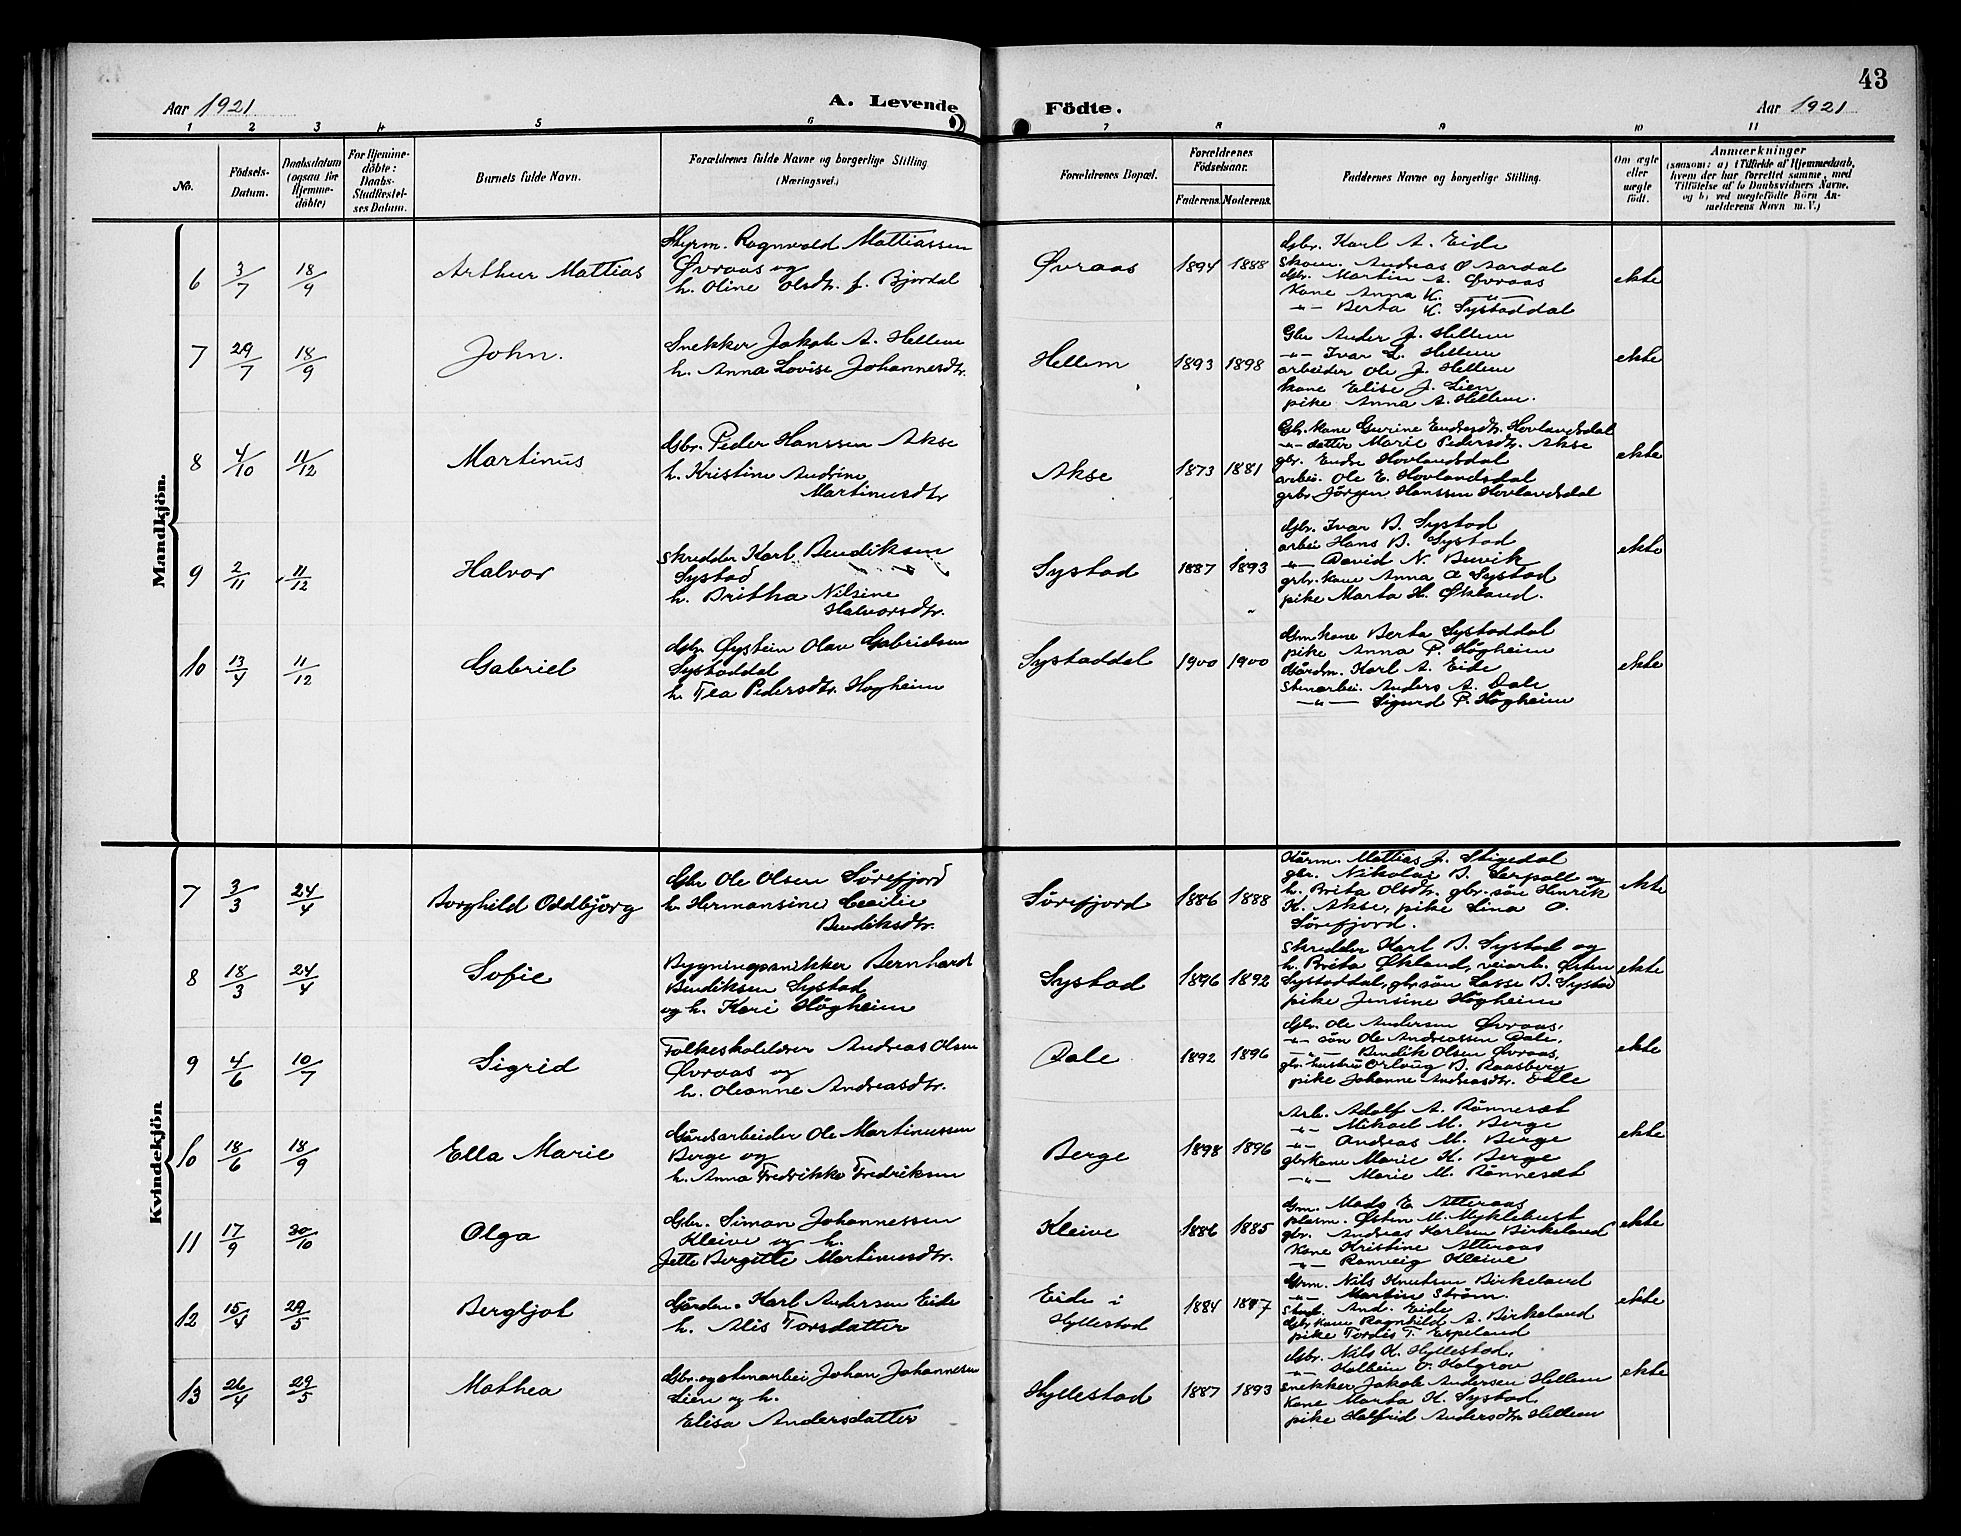 43
Aar 1921
A. Levende
Födte.
Aar 1921
1 2 3 4 5 6 7 8 9 10 11
No.
Födsels-
Datum.
Daabsdatum
(ogsaa for
Hjemme-
döbte)
For Hjemme-
döbte:
Daabs-
Stadfæstel-
ses Datum.
Barnets fulde Navn.
Forældrenes fulde Navne og borgerlige Stilling
(Næringsvei.)
Forældrenes Bopæl.
Forældrenes
Födselsaar.
Faderens. Moderens.
Faddernes Navne og borgerlige Stilling.
Om ægte
eller
uægte
födt.
Anmærkninger
(saasom: a) i Tilfælde af Hjemmedaab,
hvem der har forrettet samme, med
Tilföielse af to Daabsvidners Navne,
og b) ved uægtefödte Börn An-
melderens Navn m. V.)
Mandkjön.
6 3/7 18/9 Arthur Mattias
Styrm. Ragnvald Mattiassen
Øvraas og
h. Oline Olsdtr. f. Bjordal
Øvraas 1894 1888
Gbr. Karl A. Eide
skom. Andreas O Aardal
gbr. Martin A. Øvraas
Kone Anna K. -"-
-"- Berta K. Systaddal
ekte
7 29/7 18/9 John.
Snekker Jakob A. Hellem
h. Anna Lovise Johannesdtr.
Hellem 1893 1898
Gbr Ander J. Hellem
-"- Ivar L. Hellem
arbeider Ole J. Hellem
kone Elise J. Lien
pike Anna A. Hellem.
ekte
8 4/10 11/12 Martinus
Gbr. Peder Hanssen Akse
h. Kristine Andrine
Martinusdtr
Akse 1873 1881
Gbr. kone Gurine Endresdtr. Hovlandsdal
-"- datter Marie Pedersdtr. Akse
gbr. Endre Hovlandsdal
arbei. Ole E. Hovlandsdal
grbr Jörgen Hanssen Hovlandsdal
ekte
9 2/11 11/12 Halvor
Skredder Karl Bendiksen
Systad
h. Britha Nilsine
Halvorsdtr.
Systad 1887 1893
Gbr. Ivar B. Systad
arbei Hans B. Systad
-"- David N. Buvik
grbr. kone Anna O Systad
pike Marta H. Økland.
ekte
10 13/4 11/12 Gabriel
Gbr Øystein Olav Gabrielsen
Systaddal
h. Tea Pedersdtr. Høgheim
Systaddal 1900 1900
Gm kone Berta Systaddal
pike Anna P. Högheim
Gårdm. Karl A. Eide
Stenarbei. Anders A. Dale
-"- Sigurd P. Högheim
ekte
Kvindekjön
7 3/3 24/4 Borghild Oddbjörg
Gbr Ole Olsen Sörefjord
h. Hermansine Cecilie
Bendiksdtr.
Sörefjord 1886 1888
Mattias J. Stigedal
gbr. Nikolai B. Serpoll og
h. Brita Olsdtr. gbr. sön Henrik
K. Akse, pike Lina O.
Sörefjord.
ekte
8 18/3 24/4 Sofie
Bygningssnikker Bernhard
Bendiksen Systad
og h. Kari Högheim
Systad 1896 1892
Skredder Karl B. Systad og
h. Brita Økland, veiarb. Østen
Systaddal, gbr. sön Lasse B. Systad
pike Jensine Högheim
ekte
9 4/6 10/7 Sigrid
Folkeskolelærer Andreas Olsen
Øvraas og
h. Oleanne Andreasdtr.
Dale 1892 1896
Gbr. Ole Andersen Øvraas,
-"- sön Ole Andreassen Dale,
-"- Bendik Olsen Øvraas,
gbr. hustru Orlaug B. Raasberg
pike Johanne Andreasdtr. Dale
ekte
10 18/6 18/9 Ella Marie
Gårdsarbeider Ole Martinussen
Berge og
h. Anna Fredrikke Fredriksen
Berge 1898 1896
Arb. Adolf A. Rönneset
-"- Mikael M. Berge
-"- Andreas M. Berge
gbrkone Marie K. Berge
-"- Marie M. Rönneset
ekte
11 17/9 30/10 Olga
Gbr. Simon Johannessen
Kleive og h.
Jette Bergitte Martinusdtr.
Kleive 1886 1885
Gm. Mads E Atteraas
plasm. Østen M. Myklebust
gbr. Andreas Karlsen Birkeland
Kone Kristine Atteraas
-"- Ranveig Kleive
ekte
12 15/4 29/5 Bergljot
Gårdm. Karl Andersen Eide
h. Alis Torsdatter
Eide i
Hyllestad
1884
Grm. Nils Knutsen Birkeland
-"- Martin Ström.
Stud. And. Eide
Gbr kone Ragnhild A. Birkeland
pike Tordis T. Espeland
ekte
13 26/4 29/5 Mathea
Gbr. og stenarbei Johan Johannesen
Lien og h.
Elisa Andersdatter
Hyllestad 1887 1893
Gbr. Nils K. Hyllestad,
-"- Halbein O. Kolgrov
snekker Jakob Andersen Hellem
Kone Marta K. Systad
pike Halfrid Andersdtr. Hellem
ekte